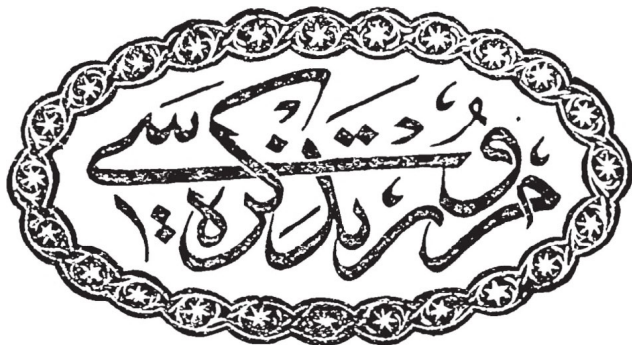 مرور تذكرەسی